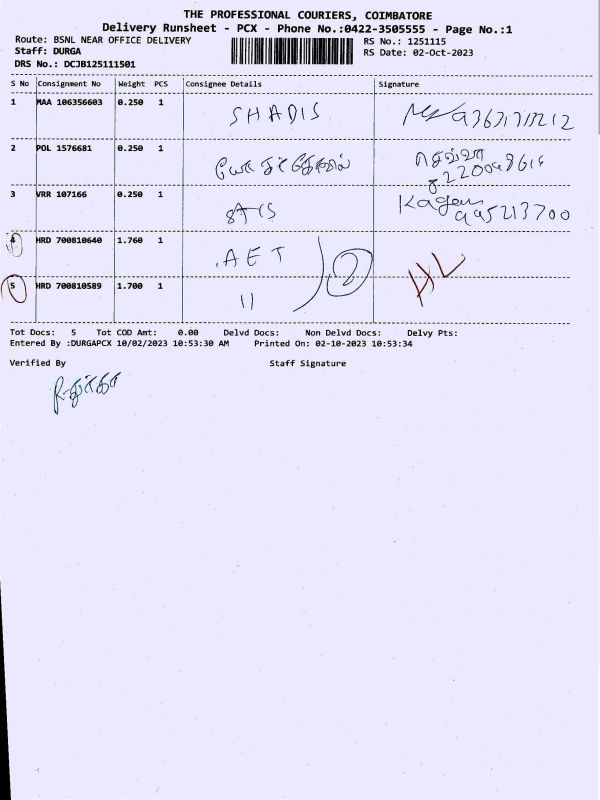 THE PROFESSIONAL COURIERS, COIMBATORE
Delivery Runsheet - PCX - Phone No.:0422-3505555 - Page No.:1
Route: BSNL NEAR OFFICE DELIVERY RS No.: 1251115
Staff: DURGA RS Date: 02-Oct-2023
DRS No.: DCJB125111501
S No Consignment No Weight PCS Consignee Details Signature
1 MAA 106356603 0.250 1 SHADIS
2 POL 1576681 0.250 1
3 VRR 107166 0.250 1
4 HRD 700810640 1.760 1 AET 2
5 HRD 700810589 1.700 1 11
Tot Docs: 5 Tot COD Amt: 0.00 Delvd Docs: Non Delvd Docs: Delvy Pts:
Entered By :DURGAPCX 10/02/2023 10:53:30 AM Printed On: 02-10-2023 10:53:34
Verified By Staff Signature